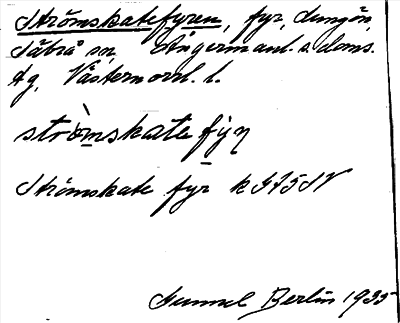 Strömskatefyren, fyr, Lungön,
Säbrå sn, Ångermanl. s. doms.
tg, Västernorrl. l.
stròmskate fy̱ṇ
Strömskate fyr k 375 SV
Gunnel Berlin 1935